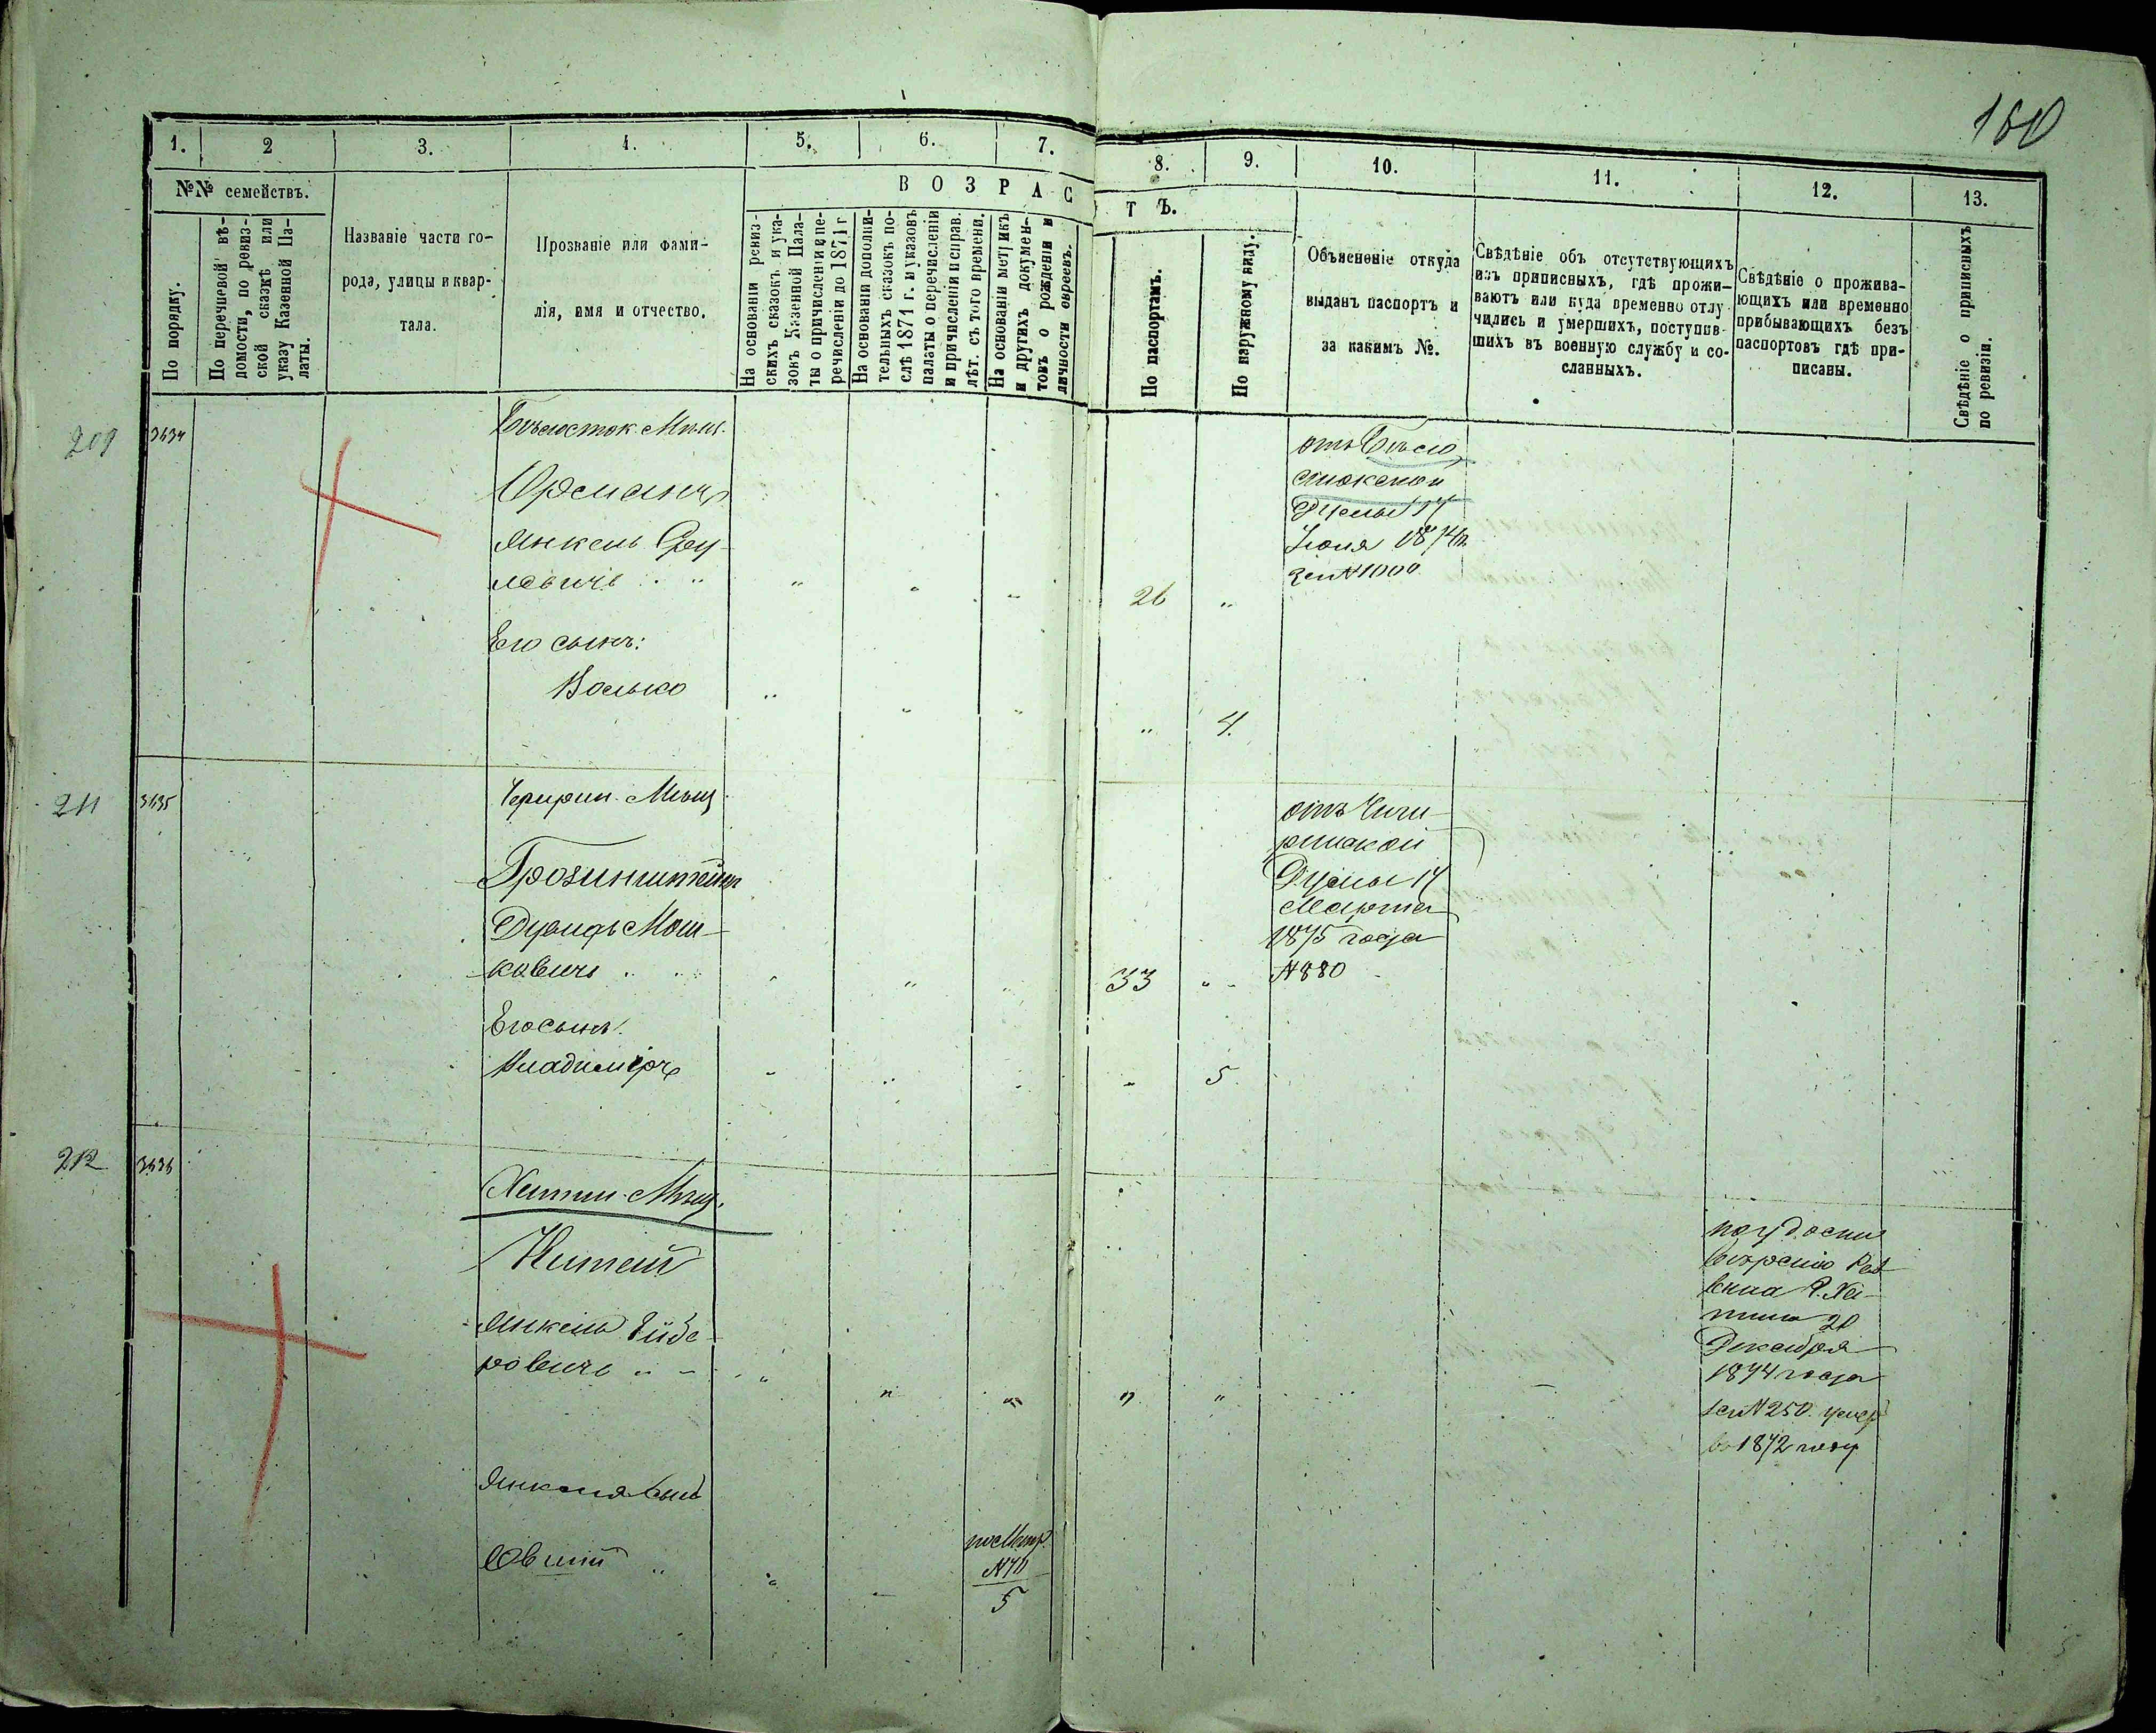 160
1. 2 3. 4. 5. 6. 7. 8. 9. 10. 11. 12. 13.
№№ семействъ.
По порядку.
По перечневой вѣ-
домости, по ревиз-
ской сказкѣ или
указу Казенной Па-
латы.
Названіе части го-
рода, улицы и квар-
тала.
Прозваніе или фами-
лія, имя и отчество.
В О З Р А С
Т Ъ.
На основаніи ревиз-
скихъ сказокъ и ука-
зокъ Казенной Пала-
ты о причисленіи и пе-
речисленіи до 1871 г
На основаніи дополни-
тельныхъ сказокъ по-
слѣ 1871 г. и указовъ
палаты о перечисленіи
и причисленіи исправ.
лѣт. съ того времени.
На основаніи метрикъ
и другихъ докумен-
товъ о рожденіи и
личности евреевъ.
По паспортамъ.
По наружному виду.
Объясненіе откуда
выданъ паспортъ и
за какимъ №.
Свѣдѣніе объ отсутствующихъ
изъ приписныхъ, гдѣ прожи-
ваютъ или куда временно отлу-
чились и умершихъ, поступив-
шихъ въ военную службу и со-
сланныхъ.
Свѣдѣніе о прожива-
ющихъ или временно
прибывающихъ безъ
паспортовъ гдѣ при-
писаны.
Свѣдѣніе о приписныхъ
по ревизіи.
209 3634
Бѣлосток. Мѣщ.
Янкель Сру-
левичъ
26
отъ Бѣло
стокской
Думы 17
Іюня 1874
за №1000
Его сынъ:
Волько
4.
211 3635
Чигирин. Мѣщ
Грозинштейнъ
Дувидъ Мош-
ковичъ
33
отъ Чиги-
ринской
Думы 17
Марта
1875 года
№880
Его сынъ
Владиміръ
5
212 3636
Хотин. Мѣщ.
Янкель
ровичъ
по удосто
вѣренію Рав
вина Г. Хо-
тина 20
Декабря
1874 года
за №250. умер
въ 1872 году
Янкеля сынъ
Овшій
по Метр.
№70
5